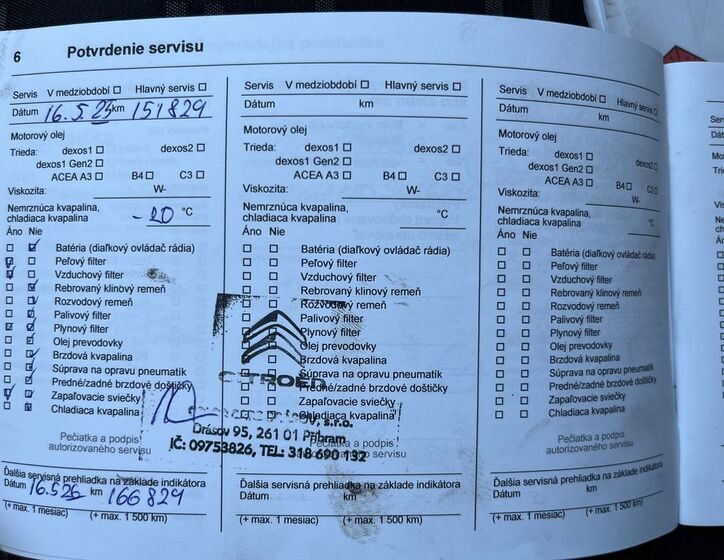 6 Potvrdenie servisu
Servis V medziobdobí ☐ Hlavný servis ☐
Dátum 16.5.25 km 151829
Motorový olej
Trieda: dexos1 ☐ dexos2 ☐
dexos1 Gen2 ☐
ACEA A3 ☐ B4 ☐ C3 ☐
Viskozita: W-
Nemrznúca kvapalina,
chladiaca kvapalina -20 °C
Áno Nie
Batéria (diaľkový ovládač rádia)
Peľový filter
Vzduchový filter
Rebrovaný klinový remeň
Rozvodový remeň
Palivový filter
Plynový filter
Olej prevodovky
Brzdová kvapalina
Súprava na opravu pneumatík
Predné/zadné brzdové doštičky
Zapaľovacie sviečky
Chladiaca kvapalina
Pečiatka a podpis
autorizovaného servisu
Ďalšia servisná prehliadka na základe indikátora
Dátum 16.5.26 km 166829
(+ max. 1 mesiac) (+ max. 1 500 km)
Servis V medziobdobí ☐ Hlavný servis ☐
Dátum km
Motorový olej
Trieda: dexos1 ☐ dexos2 ☐
dexos1 Gen2 ☐
ACEA A3 ☐ B4 ☐ C3 ☐
Viskozita: W-
Nemrznúca kvapalina,
chladiaca kvapalina °C
Áno Nie
Batéria (diaľkový ovládač rádia)
Peľový filter
Vzduchový filter
Rebrovaný klinový remeň
Rozvodový remeň
Palivový filter
Plynový filter
Olej prevodovky
Brzdová kvapalina
Súprava na opravu pneumatík
Predné/zadné brzdové doštičky
Zapaľovacie sviečky
Chladiaca kvapalina
Pečiatka a podpis
autorizovaného servisu
CITROËN
s.r.o.
Drásov 95, 261 01 Příbram
IČ: 09753826, TEL: 318 690 132
Ďalšia servisná prehliadka na základe indikátora
Dátum km
(+ max. 1 mesiac) (+ max. 1 500 km)
Servis V medziobdobí ☐ Hlavný servis ☐
Dátum km
Motorový olej
Trieda: dexos1 ☐ dexos2 ☐
dexos1 Gen2 ☐
ACEA A3 ☐ B4 ☐ C3 ☐
Viskozita: W-
Nemrznúca kvapalina,
chladiaca kvapalina °C
Áno Nie
Batéria (diaľkový ovládač rádia)
Peľový filter
Vzduchový filter
Rebrovaný klinový remeň
Rozvodový remeň
Palivový filter
Plynový filter
Olej prevodovky
Brzdová kvapalina
Súprava na opravu pneumatík
Predné/zadné brzdové doštičky
Zapaľovacie sviečky
Chladiaca kvapalina
Pečiatka a podpis
autorizovaného servisu
Ďalšia servisná prehliadka na základe indikátora
Dátum km
(+ max. 1 mesiac) (+ max. 1 500 km)